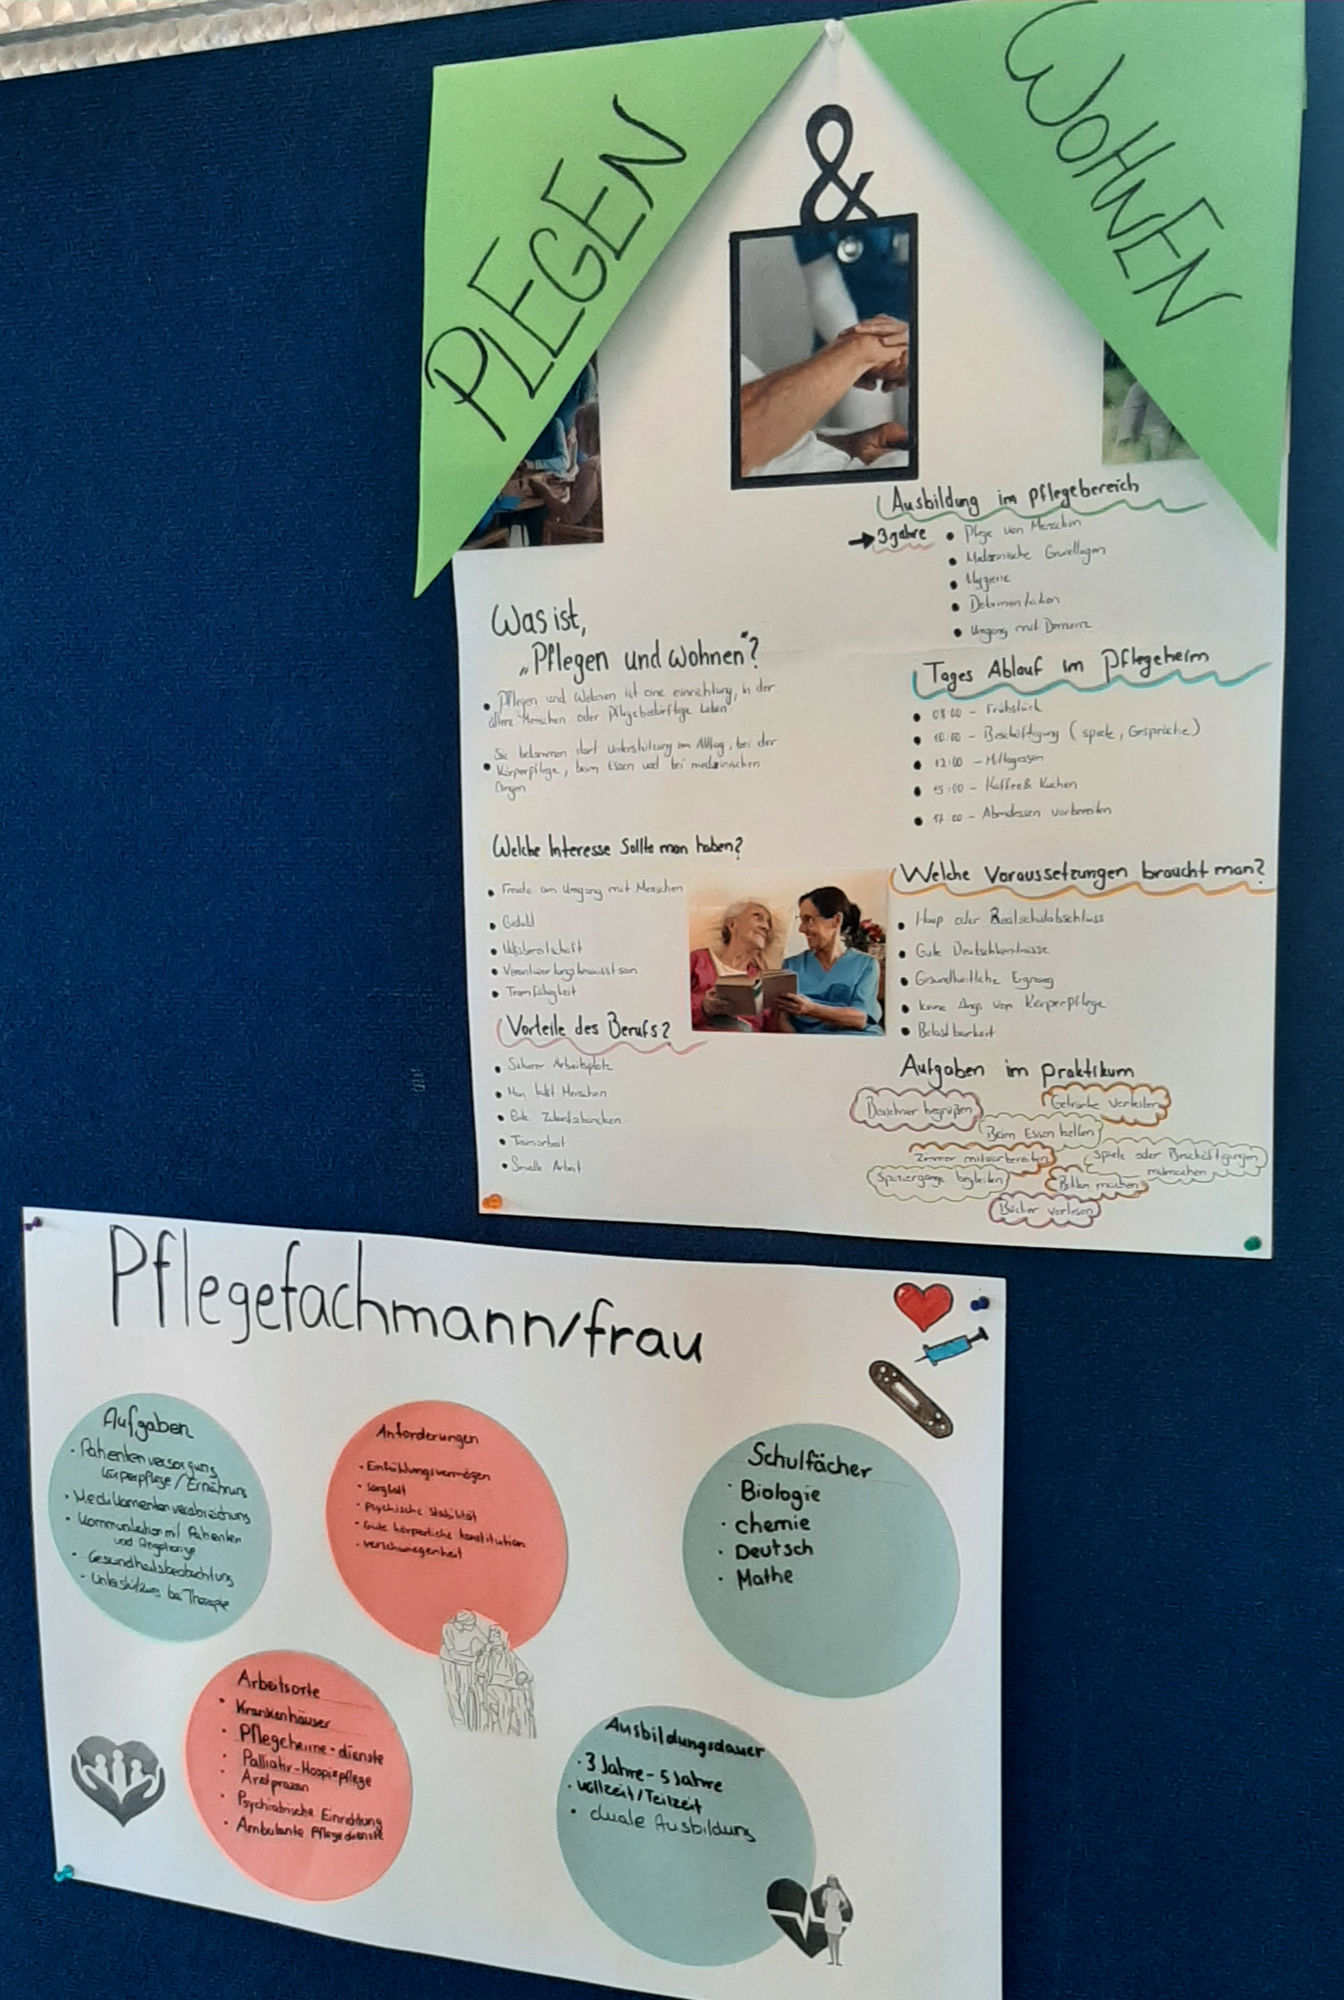 PLEGEN
&
WOHNEN
Ausbildung im Pflegebereich
→ 3 Jahre
• Pflege von Menschen
• Medizinische Grundlagen
• Hygiene
• Dokumentation
• Umgang mit Demenz
Was ist,
„Pflegen und Wohnen"?
• Pflegen und Wohnen ist eine einrichtung, in der
ältere Menschen oder Pflegebedürftige Leben
• Sie bekommen dort unterstützung im Alltag, bei der
Körperpflege, beim Essen und bei medizinischen
Dingen.
Tages Ablauf im Pflegeheim
• 08:00 - Frühstück
• 10:00 - Beschäftigung (spiele, Gespräche)
• 12:00 - Mittagessen
• 15:00 - Kaffee & Kuchen
• 17:00 - Abendessen vorbereiten
Welche Interesse Sollte man haben?
• Freude am Umgang mit Menschen
• Geduld
• Hilfsbereitschaft
• Verantwortungsbewusstsein
• Teamfähigkeit
Vorteile des Berufs?
• Sicherer Arbeitsplatz
• Man hilft Menschen
• Gute
• Teamarbeit
• Arbeit
Welche Voraussetzungen braucht man?
• Haup oder Realschulabschluss
• Gute Deutschkentnisse
• Gesundheitliche Eignung
• keine Angs von Körperpflege
• Belastbarkeit
Aufgaben im praktikum
Bewohner begrüßen
Getränke verteilen
Beim Essen helfen
Zimmer mitvorbereiten
Spiele oder Beschäftigungen
mitmachen
Spaziergänge begleiten
Betten machen
Bücher vorlesen
Pflegefachmann/frau
Aufgaben
• Patientenversorgung
Körperpflege / Ernährung
• Medikamentenverabreichung
• Kommunikation mit Patienten
und Angehörige
• Gesundheitsbeobachtung
• Unterstützung bei Therapie
Anforderungen
• Einfühlungsvermögen
• Sorgfalt
• Psychische Stabilität
• Gute körperliche konstitution
• verschwiegenheit
Schulfächer
• Biologie
• chemie
• Deutsch
• Mathe
Arbeitsorte
• Krankenhäuser
• Pflegeheime - dienste
• Palliativ-Hospizpflege
• Arztpraxen
• Psychiatrische Einrichtung
• Ambulante Pflegedienste
Ausbildungsdauer
• 3 Jahre - 5 Jahre
• vollzeit / Teilzeit
• duale Ausbildung